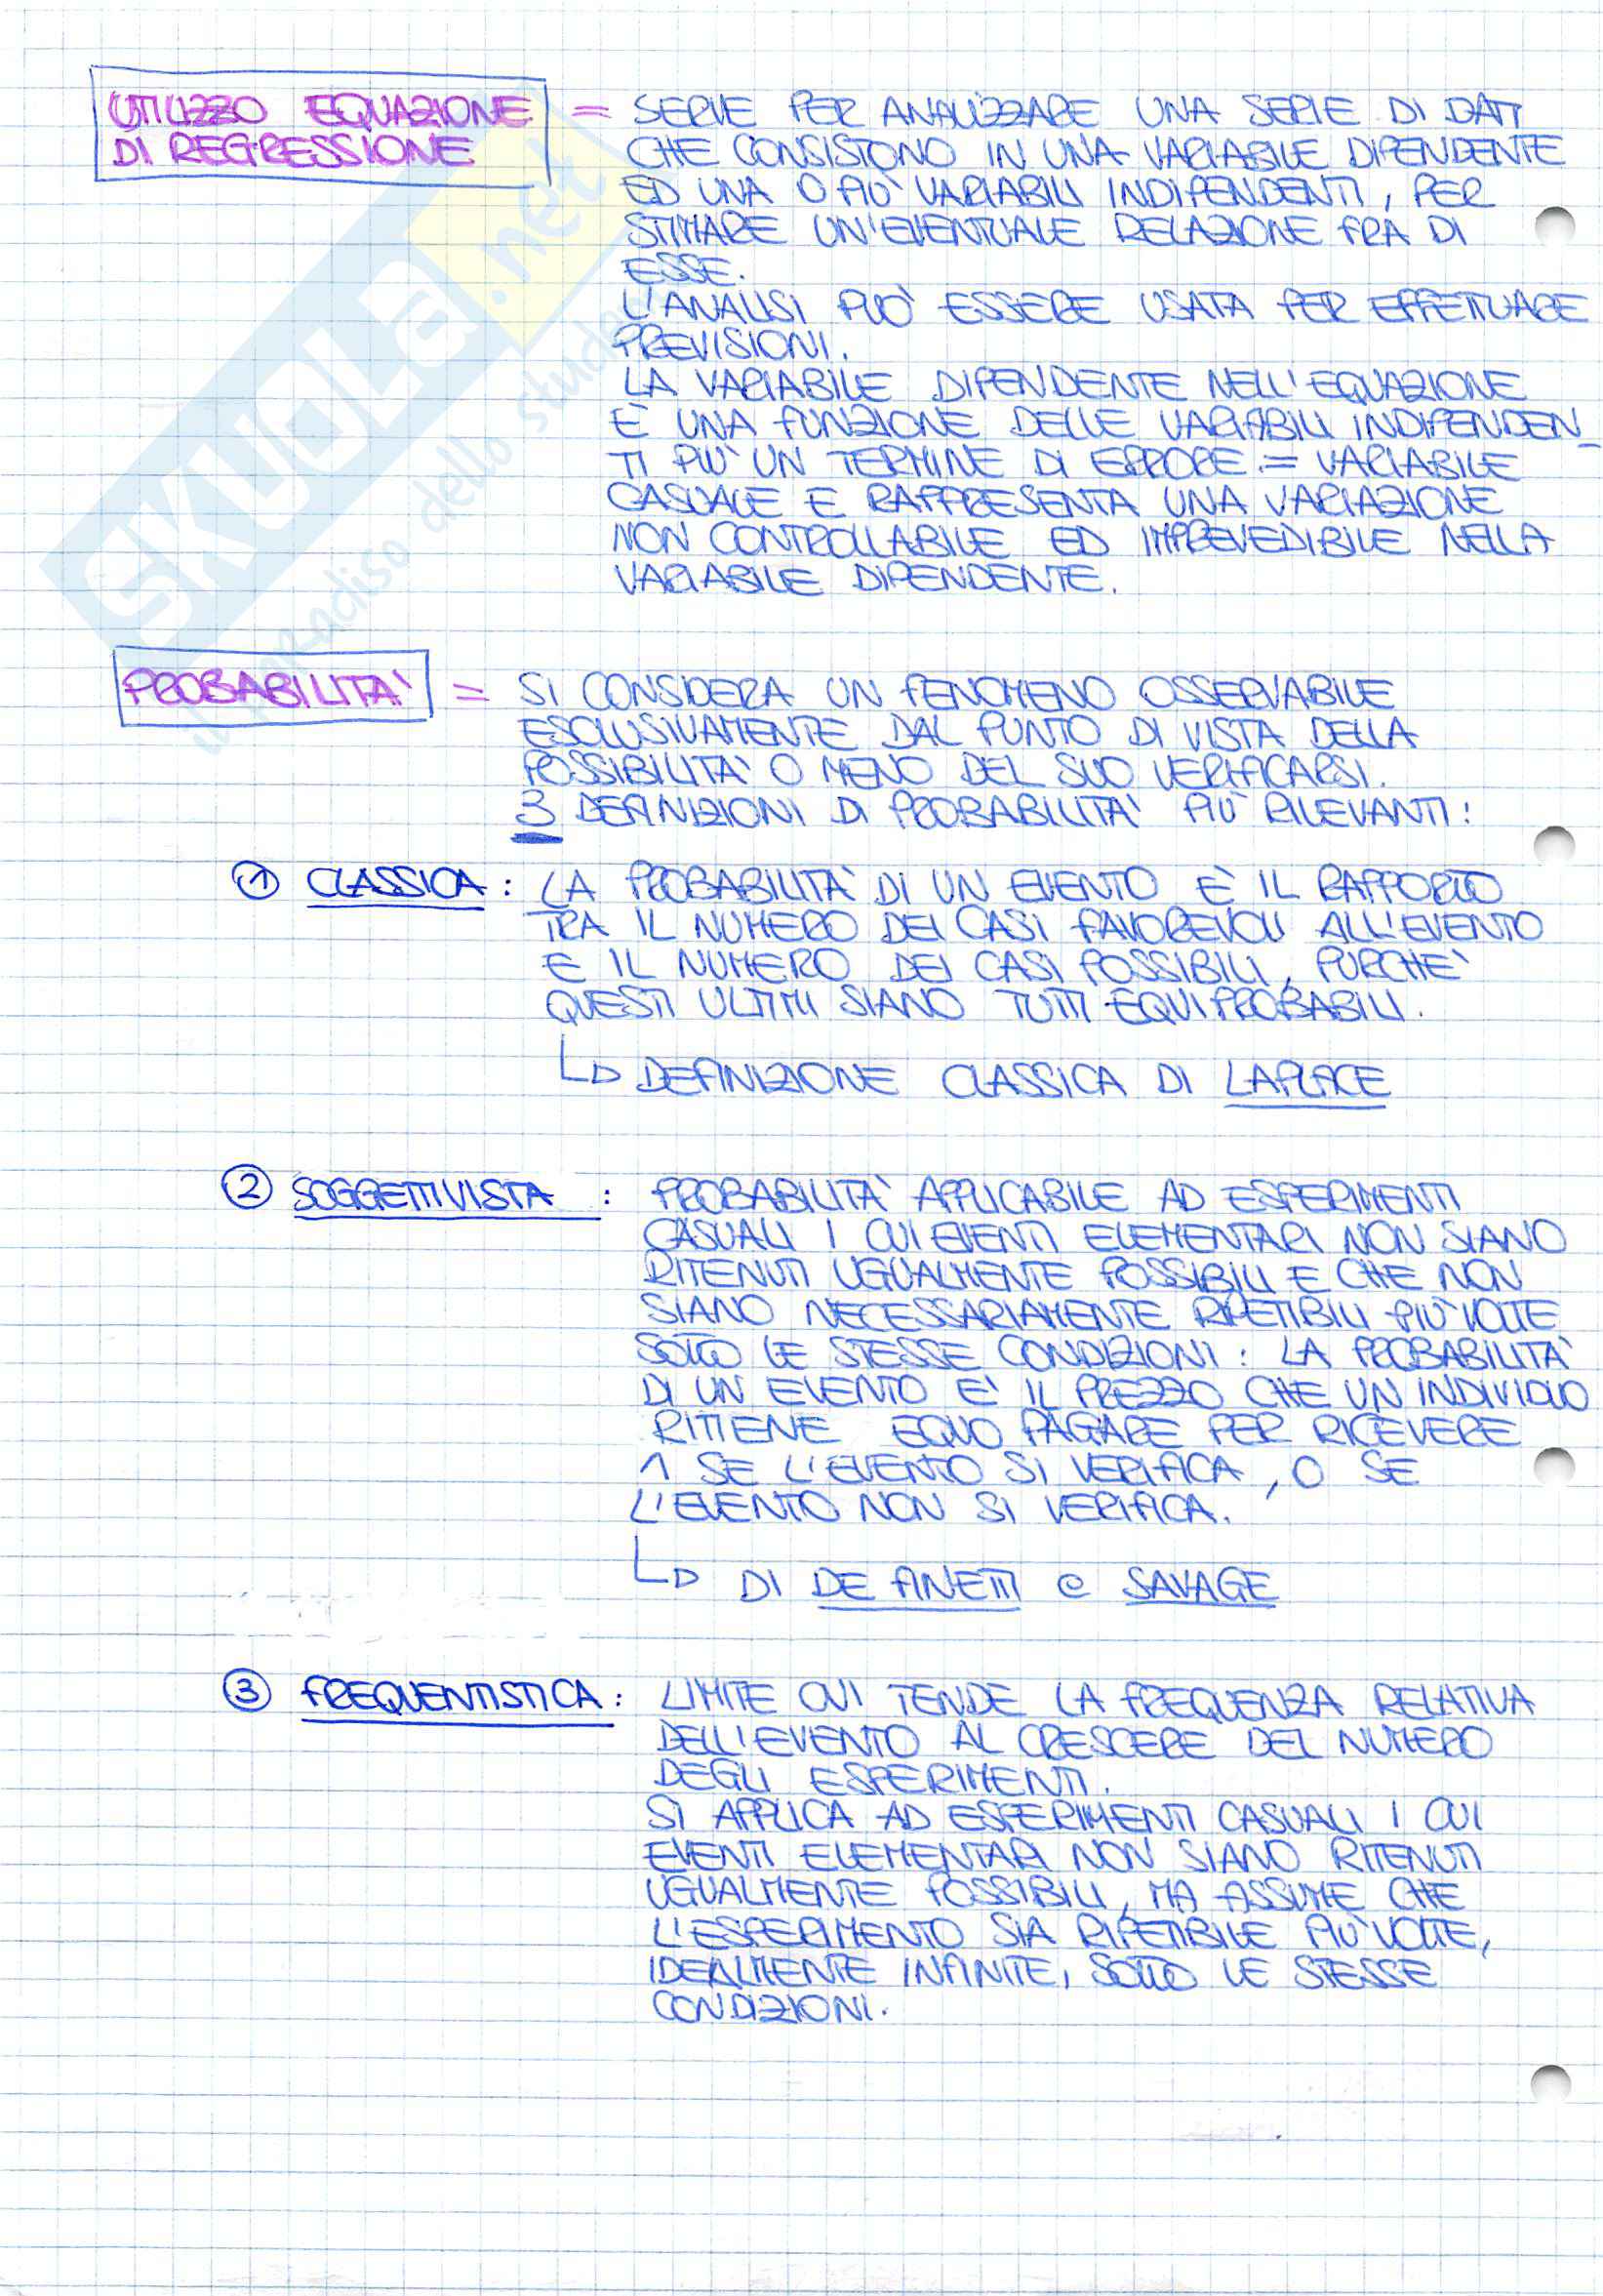 UTILIZZO EQUAZIONE DI REGRESSIONE = SERVE PER ANALIZZARE UNA SERIE DI DATI
CHE CONSISTONO IN UNA VARIABILE DIPENDENTE
ED UNA O PIÙ VARIABILI INDIPENDENTI, PER
STIMARE UN'EVENTUALE RELAZIONE FRA DI
ESSE.
L'ANALISI PUÒ ESSERE USATA PER EFFETTUARE
PREVISIONI.
LA VARIABILE DIPENDENTE NELL'EQUAZIONE
È UNA FUNZIONE DELLE VARIABILI INDIPENDEN_
TI PIÙ UN TERMINE DI ERRORE = VARIABILE
CASUALE E RAPPRESENTA UNA VARIAZIONE
NON CONTROLLABILE ED IMPREVEDIBILE NELLA
VARIABILE DIPENDENTE.
PROBABILITA' = SI CONSIDERA UN FENOMENO OSSERVABILE
ESCLUSIVAMENTE DAL PUNTO DI VISTA DELLA
POSSIBILITA' O MENO DEL SUO VERIFICARSI.
3 DEFINIZIONI DI PROBABILITA' PIÙ RILEVANTI:
① CLASSICA: LA PROBABILITA' DI UN EVENTO È IL RAPPORTO
TRA IL NUMERO DEI CASI FAVOREVOLI ALL'EVENTO
E IL NUMERO DEI CASI POSSIBILI, PURCHE'
QUESTI ULTIMI SIANO TUTTI EQUIPROBABILI.
DEFINIZIONE CLASSICA DI LAPLACE
② SOGGETTIVISTA: PROBABILITA' APPLICABILE AD ESPERIMENTI
CASUALI I CUI EVENTI ELEMENTARI NON SIANO
RITENUTI UGUALMENTE POSSIBILI E CHE NON
SIANO NECESSARIAMENTE RIPETIBILI PIÙ VOLTE
SOTTO LE STESSE CONDIZIONI: LA PROBABILITA'
DI UN EVENTO E' IL PREZZO CHE UN INDIVIDUO
RITIENE EQUO PAGARE PER RICEVERE
1 SE L'EVENTO SI VERIFICA, 0 SE
L'EVENTO NON SI VERIFICA.
DI DE FINETTI e SAVAGE
③ FREQUENTISTICA: LIMITE CUI TENDE LA FREQUENZA RELATIVA
DELL'EVENTO AL CRESCERE DEL NUMERO
DEGLI ESPERIMENTI.
SI APPLICA AD ESPERIMENTI CASUALI I CUI
EVENTI ELEMENTARI NON SIANO RITENUTI
UGUALMENTE POSSIBILI, MA ASSUME CHE
L'ESPERIMENTO SIA RIPETIBILE PIÙ VOLTE,
IDEALMENTE INFINITE, SOTTO LE STESSE
CONDIZIONI.
SKUOLA.net
il paradiso dello studente